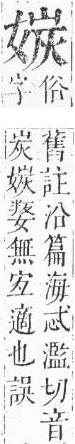 㛶
俗
字
舊註沿篇海忒濫切音
炭㛶婺無宐適也誤